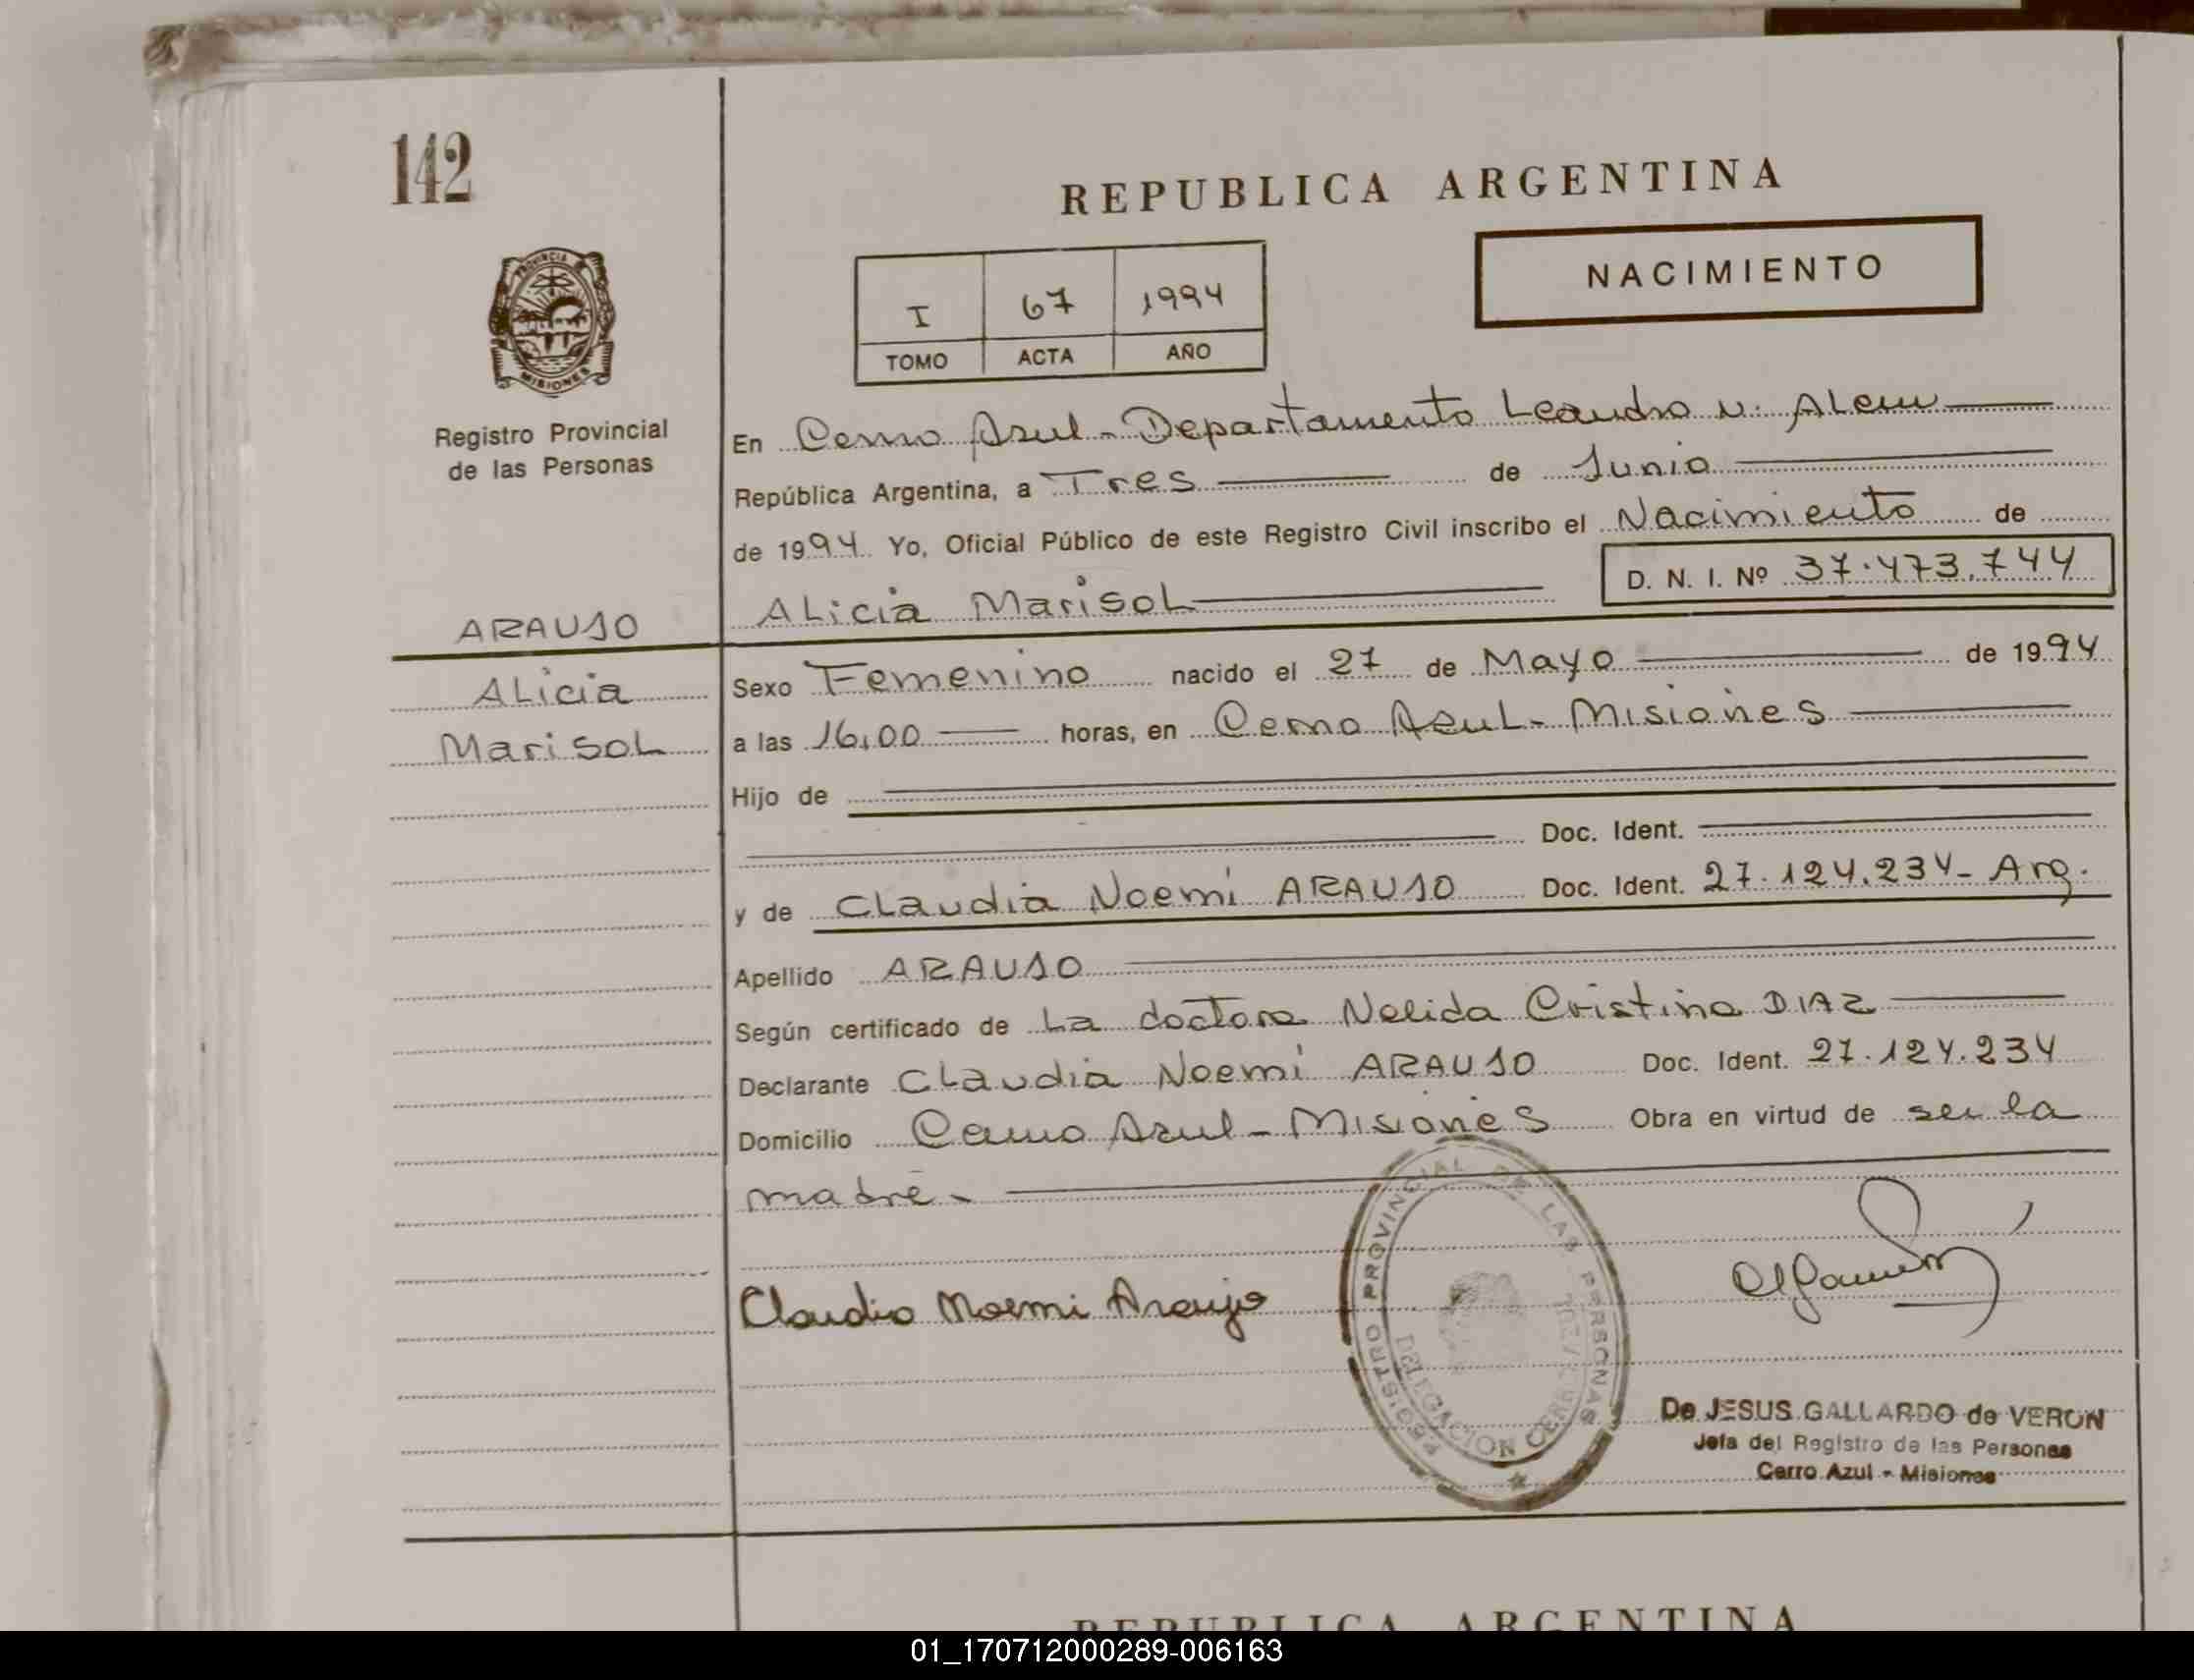 142
REPUBLICA ARGENTINA
NACIMIENTO
I 67 1994
TOMO ACTA AÑO
PROVINCIA DE
MISIONES
Registro Provincial
de las Personas
En Cerro Azul - Departamento Leandro N. ALem
República Argentina, a Tres de Junio
de 1994 Yo, Oficial Público de este Registro Civil inscribo el Nacimiento de
D. N. I. Nº 37.473.744
ALicia MarisoL
ARAUJO
ALicia
MarisoL
Sexo Femenino nacido el 27 de Mayo de 1994
a las 16,00 horas, en Cerro AzuL - Misiones
Hijo de
Doc. Ident.
y de CLaudia Noemí ARAUJO Doc. Ident. 27.124.234 - Arg.
Apellido ARAUJO
Según certificado de La doctora Nelida Cristina DIAZ
Declarante CLaudia Noemí ARAUJO Doc. Ident. 27.124.234
Domicilio Cerro Azul - Misiones Obra en virtud de ser la
madre -
Claudia Noemi Araujo
REGISTRO PROVINCIAL DE LAS PERSONAS
DELEGACION CERRO AZUL
De JESUS GALLARDO de VERON
Jefa del Registro de las Personas
Cerro Azul - Misiones
REPUBLICA ARGENTINA
01_170712000289-006163